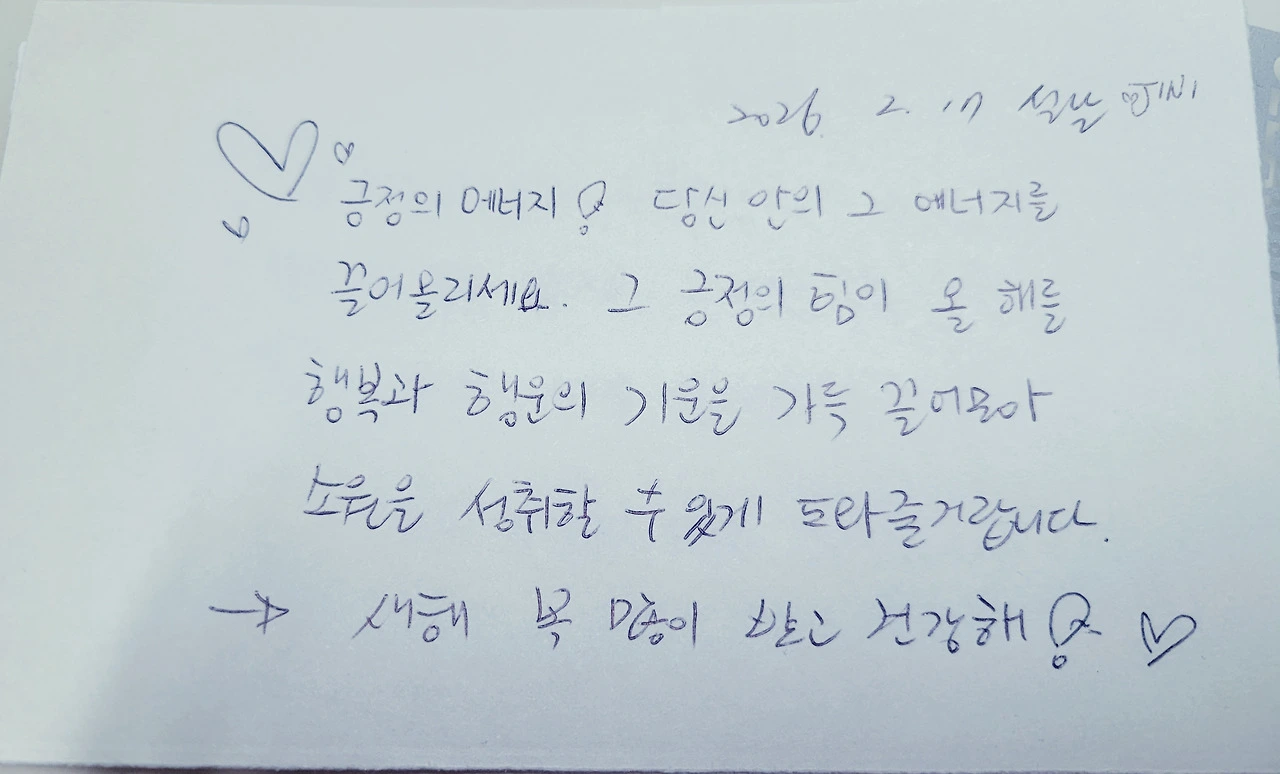 2026. 2. 17 설날 ♡JINI
긍정의 에너지! 당신 안의 그 에너지를
끌어올리세요. 그 긍정의 힘이 올 해를
행복과 행운의 기운을 가득 끌어모아
소원을 성취할 수 있게 도와줄거랍니다.
→ 새해 복 많이 받고 건강해! ♡